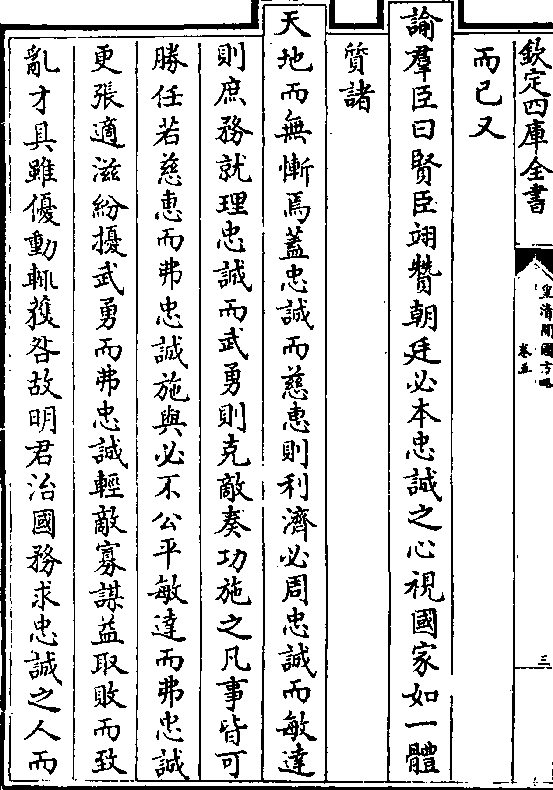 欽定四庫全書
皇清開國方略
卷五
三
而已又
諭羣臣曰賢臣翊贊朝廷必本忠誠之心視國家如一體
質諸
天地而無慚焉蓋忠誠而慈惠則利濟必周忠誠而敏達
則庶務就理忠誠而武勇則克敵奏功施之凡事皆可
勝任若慈惠而弗忠誠施與必不公平敏達而弗忠誠
更張適滋紛擾武勇而弗忠誠輕敵寡謀益取敗而致
亂才具雖優動輒獲咎故明君治國務求忠誠之人而